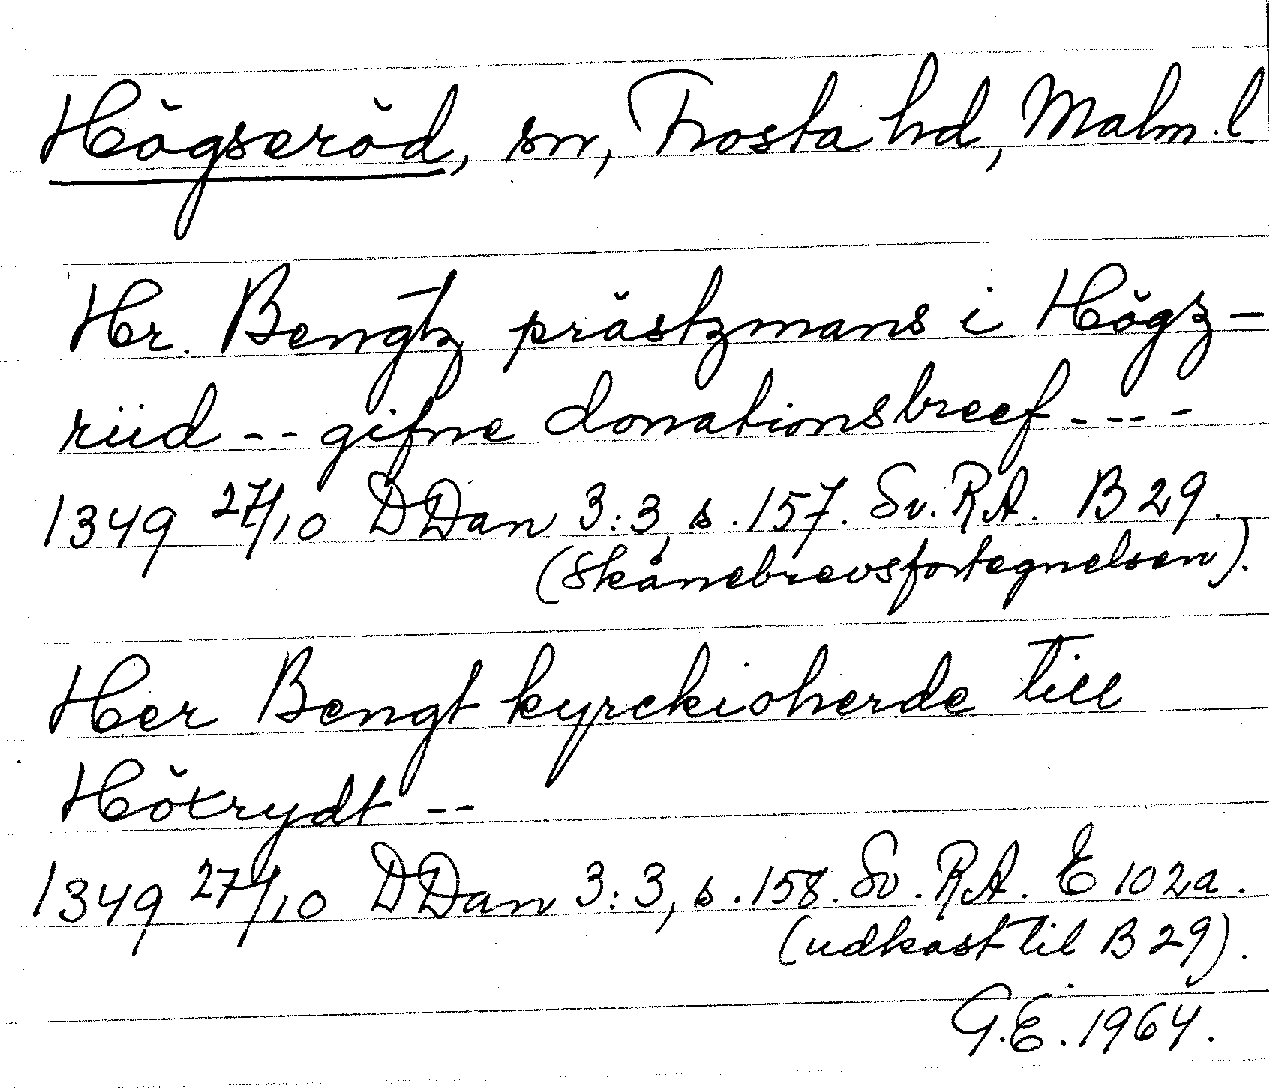 Högseröd, sn, Frosta hd, Malm. l
Hr. Bengtz prästzmans i Högz-
riid -- gifne donationsbreef ---
1349 27/10 DDan 3:3, s. 157. Sv. R.A. B 29.
(Skånebrevsfortegnelsen).
Her Bengt kyrckioherde till
Höxrydt --
1349 27/10 DDan 3:3, s. 158. Sv. R.A. E 102a.
(udkast til B 29).
G.E. 1964.